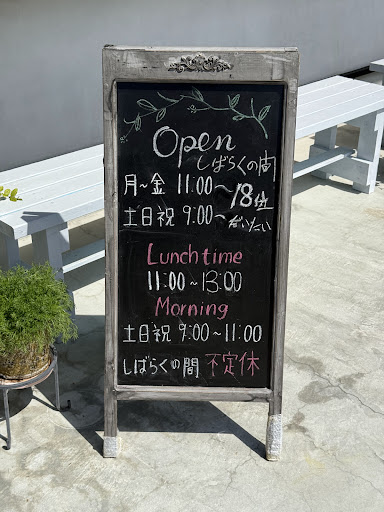 Open
しばらくの間
月~金 11:00~18位
土日祝 9:00~だいたい
Lunch time
11:00~13:00
Morning
土日祝 9:00~11:00
しばらくの間 不定休